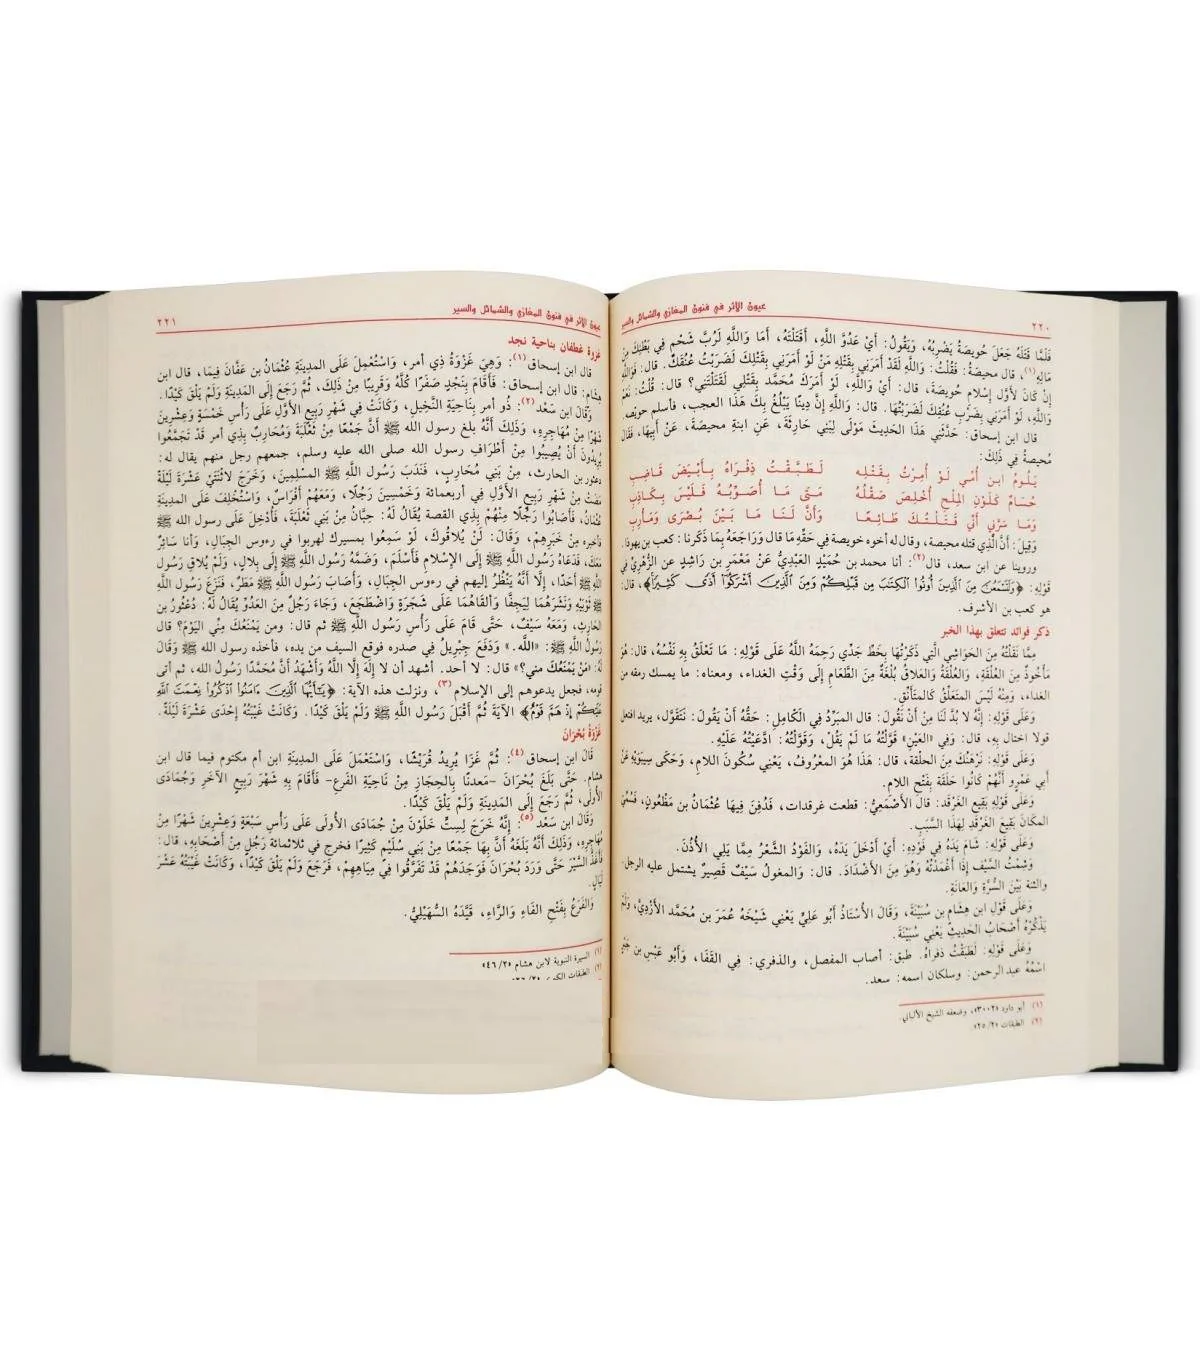 ٢٢٠
عيون الأثر في فنون المغازي والشمائل والسير
فَلَمَّا قَتَلَهُ جَعَلَ حُوَيصَةُ يَضْرِبُهُ، وَيَقُولُ: أَيْ عَدُوَّ اللَّهِ، أَقَتَلْتَهُ، أَمَا وَاللَّهِ لَرُبَّ شَحْمٍ فِي بَطْنِكَ مِنْ
مَالِهِ(١)، قال محيصةُ: فَقُلْتُ: وَاللَّهِ لَقَدْ أَمَرَنِي بِقَتْلِهِ مَنْ لَوْ أَمَرَنِي بِقَتْلِكَ لَضَرَبْتُ عُنُقَكَ. قال: فَوَاللَّهِ
إِنْ كَانَ لأَوَّلَ إِسْلامِ حُوَيصَةَ، قال: أَيْ وَاللَّهِ، لَوْ أَمَرَكَ مُحَمَّد بِقَتْلِي لَقَتَلْتَنِي؟ قال: قُلْتُ: نَعَمْ
وَاللَّهِ، لَوْ أَمَرَنِي بِضَرْبِ عُنُقِكَ لَضَرَبْتُهَا. قال: وَاللَّهِ إِنَّ دِينًا يَبْلُغُ بِكَ هَذَا العجب، فأسلم حويصة.
قال ابن إسحاق: حَدَّثَنِي هَذَا الحَدِيثَ مَوْلًى لِبَنِي حَارِثَةَ، عَنِ ابنةِ محيصَةَ، عَنْ أَبِيهَا، فَقَالَ
مُحيصةُ فِي ذَلِكَ:
يَلُومُ ابن أُمِّي لَوْ أُمِرْتُ بِقَتْلِهِ لَطَبَّقْتُ ذِفْرَاهُ بِأَبْيَضَ قَاضِبِ
حُسَامٌ كَلَوْنِ المِلْحِ أُخْلِصَ صَقْلُهُ مَتَى مَا أُصَوِّبُهُ فَلَيْسَ بِكَاذِبِ
وَمَا سَرَّنِي أَنِّي قَتَلْتُكَ طَائِعًا وَأَنَّ لَنَا مَا بَيْنَ بُصْرَى وَمَأْرِبِ
وَقِيلَ: أَنَّ الَّذِي قتله محيصة، وقال له أخوه حويصة فِي حَقِّهِ مَا قال وَرَاجَعَهُ بِمَا ذَكَرنا: كعب بن يهوذا.
وروينا عن ابن سعد، قال(٢): أنا محمد بن حُمَيْدٍ العَبْدِيُّ عَنْ مَعْمَرِ بن رَاشِدٍ عن الزُّهْرِيِّ فِي
قَوْلِهِ: ﴿وَلَتَسْمَعُنَّ مِنَ الَّذِينَ أُوتُوا الْكِتَبَ مِن قَبْلِكُمْ وَمِنَ الَّذِينَ أَشْرَكُوا أَذًى كَثِيرًا﴾، قال:
هو كعب بن الأشرف.
ذكر فوائد تتعلق بهذا الخبر
مِمَّا نَقَلْتُهُ مِنَ الحَوَاشِي الَّتِي ذَكَرْتُهَا بِخَطِّ جَدِّي رَحِمَهُ اللَّهُ عَلَى قَوْلِهِ: مَا تَعَلَّقَ بِهِ نَفْسُهُ، قال: هُوَ
مَأْخُوذٌ مِنَ العُلَقَةِ، وَالعُلْقَةُ وَالعَلاقُ بُلْغَةٌ مِنَ الطَّعَامِ إِلَى وَقْتِ الغداء، ومعناه: ما يمسك رمقه من
الغداء، وَمِنْهُ لَيْسَ المتعَلِّق كَالمتأَنِّقِ.
وَعَلَى قَوْلِهِ: إِنَّهُ لا بُدَّ لَنَا مِنْ أَنْ نَقُولَ: قال المبَرِّدُ فِي الكَامِلِ: حَقُّهُ أَنْ يَقُولَ: نَتَقَوَّل، يريد افتعل
قولا احتال به، قال: وَفِي «العَيْنِ» قَوَّلْتُهُ مَا لَمْ يَقُلْ، وَقَوَّلْتُهُ: ادَّعَيْتُهُ عَلَيْهِ.
وَعَلَى قَوْلِهِ: نَرْهَنُكَ مِنَ الحلْقَةِ، قال: هَذَا هُوَ المعْرُوفُ، يَعْنِي سُكُونَ اللامِ، وَحَكَى سِيبَوَيْهِ عَنْ
أَبِي عَمْرٍو أَنَّهُمْ كَانُوا حَلَقَة بِفَتْحِ اللامِ.
وَعَلَى قَوْلِهِ بَقِيعِ الغَرْقَدِ: قال الأَصْمَعِيُّ: قطعت غرقدات، فَدُفِنَ فِيهَا عُثْمَانُ بن مَظْعُونٍ، فَسُمِّيَ
المكَانَ بَقِيعَ الغَرْقَدِ لِهَذَا السَّبَبِ.
وَعَلَى قَوْلِهِ: شَامَ يَدَهُ فِي فَوْدِهِ: أَيْ أَدْخَلَ يَدَهُ، وَالفَوْدُ الشَّعْرُ مِمَّا يَلِي الأُذُنَ.
وَشِمْتُ السَّيْفَ إِذَا أَغْمَدْتُهُ وَهُوَ مِنَ الأَضْدَادِ. قال: وَالمغولُ سَيْفٌ قَصِيرٌ يشتمل عليه الرجل،
والثنة بَيْنَ السُّرَّةِ وَالعَانَةِ.
وَعَلَى قَوْلِ ابن هِشَامٍ بن سُبَيْنَةَ، وَقَالَ الأُسْتَاذُ أَبُو عَلِيٍّ يَعْنِي شَيْخَهُ عُمَرَ بن مُحَمَّد الأَزْدِيَّ، وَلَمْ
يَذْكُرْهُ أَصْحَابُ الحَدِيثِ يَعْنِي سُبَيْنَةَ.
وَعَلَى قَوْلِهِ: لَطَبَّقْتُ ذفراهُ. طبق: أصاب المفصل، والذفري: فِي القَفَا، وَأَبُو عَبْسِ بن جَبْرٍ
اسْمُهُ عبد الرحمن: وسلكان اسمه: سعد.
(١) أبو داود «٣٠٠٢»، وضعفه الشيخ الألباني.
(٢) الطبقات «٢/ ٢٥».
عيون الأثر في فنون المغازي والشمائل والسير
٢٢١
غزوة غطفان بناحية نجد
قال ابن إسحاق(١): وَهِيَ غَزْوَةُ ذِي أمر، وَاسْتُعْمِلَ عَلَى المدِينَةِ عُثْمَانُ بن عَفَّانَ فِيمَا، قال ابن
هِشَام: قال ابن إسحاق: فَأَقَامَ بِنَجْدٍ صَفَرًا كُلَّهُ وَقَرِيبًا مِنْ ذَلِكَ، ثُمَّ رَجَعَ إِلَى المدِينَةِ وَلَمْ يَلْقَ كَيْدًا.
وَقَالَ ابن سَعْد(٢): ذُو أمر بِنَاحِيَةِ النَّخِيلِ، وَكَانَتْ فِي شَهْرِ رَبِيعٍ الأَوَّلِ عَلَى رَأْسِ خَمْسَةٍ وَعِشْرِينَ
شَهْرًا مِنْ مُهَاجِرِهِ، وَذَلِكَ أَنَّهُ بلغ رسول الله ﷺ أَنَّ جَمْعًا مِنْ ثَعْلَبَةَ وَمُحَارِبٍ بِذِي أمر قَدْ تَجَمَّعُوا
يُرِيدُونَ أَنْ يُصِيبُوا مِنْ أَطْرَافِ رسول الله صلى الله عليه وسلم، جمعهم رجل منهم يقال له:
دعثور بن الحارث، مِنْ بَنِي مُحَارِبٍ، فَنَدَبَ رَسُولُ اللَّهِ ﷺ المسْلِمِينَ، وَخَرَجَ لاثْنَتَيْ عَشْرَةَ لَيْلَةً
مَضَتْ مِنْ شَهْرِ رَبِيعٍ الأَوَّلِ فِي أربعمائة وَخَمْسِينَ رَجُلًا، وَمَعَهُمْ أَفْرَاسٌ، وَاسْتُخْلِفَ عَلَى المدِينَةِ
عُثْمَان، فَأَصَابُوا رَجُلًا مِنْهُمْ بِذِي القصة يُقَالُ لَهُ: حِبَّانُ مِنْ بَنِي ثَعْلَبَةَ، فَأُدْخِلَ عَلَى رسول الله ﷺ
فأخبره مِنْ خَبَرِهِمْ، وَقَالَ: لَنْ يُلاقُوكَ، لَوْ سَمِعُوا بمسيرك لهربوا في رءوس الجِبَالِ، وَأنا سَائِرٌ
مَعَكَ، فَدَعَاهُ رَسُولُ اللَّهِ ﷺ إِلَى الإِسْلامِ فَأَسْلَمَ، وَضَمَّهُ رَسُولُ اللَّهِ ﷺ إِلَى بِلالٍ، وَلَمْ يُلاقِ رَسُولُ
اللَّهِ ﷺ أَحَدًا، إِلَّا أَنَّهُ يَنْظُرُ إِليهم في رءوس الجِبَالِ، وَأَصَابَ رَسُولُ اللَّهِ ﷺ مَطَرٌ، فَنَزَعَ رَسُولُ اللَّهِ
ﷺ ثَوْبَيْهِ وَنَشَرَهُمَا لِيَجِفَّا وَأَلقَاهُمَا عَلَى شَجَرَةٍ وَاضْطَجَعَ، وَجَاءَ رَجُلٌ مِنَ العَدُوِّ يُقَالُ لَهُ: دُعْثُورُ بن
الحَارِثِ، وَمَعَهُ سَيْفٌ، حَتَّى قَامَ عَلَى رَأْسِ رَسُولِ اللَّهِ ﷺ ثم قال: ومن يَمْنَعُكَ مِنِّي اليَوْمَ؟ قال
رَسُولُ اللَّهِ ﷺ: «الله.» وَدَفَعَ جِبْرِيلُ فِي صدره فوقع السيف من يده، فأخذه رسول الله ﷺ وَقَالَ
لَهُ: «مَنْ يَمْنَعُكَ مِنِّي؟» قال: لا أحد. أشهد أن لا إِلَهَ إِلَّا اللَّهُ وَأَشْهَدُ أَنَّ مُحَمَّدًا رَسُولُ الله، ثم أتى
قومه، فجعل يدعوهم إلى الإسلام(٣)، ونزلت هذه الآية: ﴿يَأَيُّهَا الَّذِينَ ءَامَنُوا اذْكُرُوا نِعْمَتَ اللَّهِ
عَلَيْكُمْ إِذْ هَمَّ قَوْمٌ﴾ الآيَةَ ثُمَّ أَقْبَلَ رَسُولُ اللَّهِ ﷺ وَلَمْ يَلْقَ كَيْدًا. وَكَانَتْ غَيْبَتُهُ إِحْدَى عَشْرَةَ لَيْلَةً.
غَزْوَةُ بُحْرَانَ
قَالَ ابن إسحاق(٤): ثُمَّ غَزَا يُرِيدُ قُرَيْشًا، وَاسْتَعْمَلَ عَلَى المدِينَةِ ابن أم مكتوم فيما قال ابن
هِشَام. حَتَّى بَلَغَ بُحْرَانَ -مَعدنًا بِالحِجَازِ مِنْ نَاحِيَةِ الفَرعِ- فَأَقَامَ بِهِ شَهْرَ رَبِيعٍ الآخَرِ وَجُمَادَى
الأُولَى، ثُمَّ رَجَعَ إِلَى المَدِينَةِ وَلَمْ يَلْقَ كَيْدًا.
وَقَالَ ابن سَعْد(٥): إِنَّهُ خَرَجَ لِسِتٍّ خَلَوْنَ مِنْ جُمَادَى الأُولَى عَلَى رَأْسِ سَبْعَةٍ وَعِشْرِينَ شَهْرًا مِنْ
مُهَاجِرِهِ، وَذَلِكَ أَنَّهُ بَلَغَهُ أَنَّ بِهَا جَمْعًا مِنْ بَنِي سُلَيْمٍ كَثِيرًا فخرج في ثلاثمائة رَجُلٍ مِنْ أَصْحَابِهِ، قال:
فَأَغَذَّ السَّيْرَ حَتَّى وَرَدَ بُحْرَانَ فَوَجَدَهُمْ قَدْ تَفَرَّقُوا فِي مِيَاهِهِمْ، فَرَجَعَ وَلَمْ يَلْقَ كَيْدًا، وَكَانَتْ غَيْبَتُهُ عَشْرَ
لَيَالٍ.
وَالفَرَعُ بِفَتْحِ الفَاءِ وَالرَّاءِ، قَيَّدَهُ السُّهَيْلِيُّ.
(١) السيرة النبوية لابن هشام «٢/ ٤٦»
(٢) الطبقات